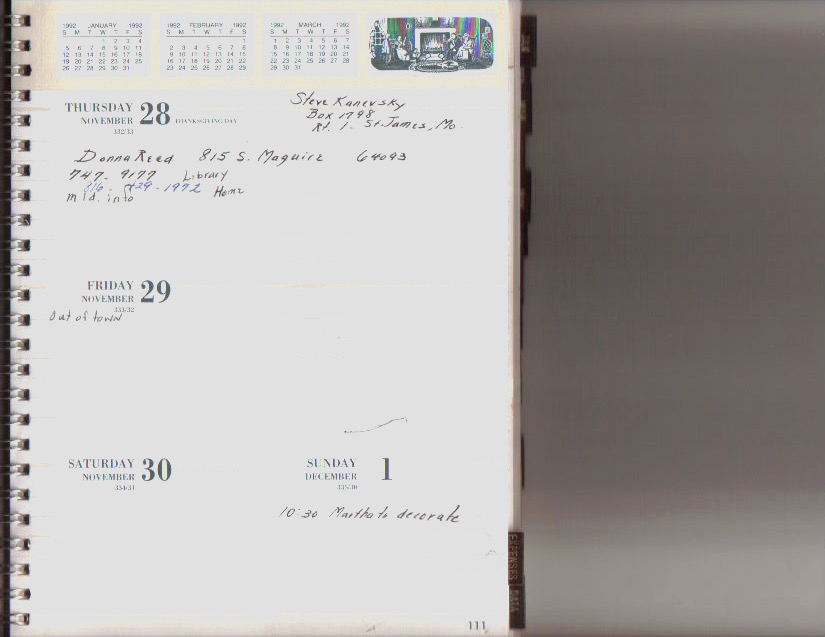 1992 JANUARY 1992
S M T W T F S
1 2 3 4
5 6 7 8 9 10 11
12 13 14 15 16 17 18
19 20 21 22 23 24 25
26 27 28 29 30 31
1992 FEBRUARY 1992
S M T W T F S
1
2 3 4 5 6 7 8
9 10 11 12 13 14 15
16 17 18 19 20 21 22
23 24 25 26 27 28 29
1992 MARCH 1992
S M T W T F S
1 2 3 4 5 6 7
8 9 10 11 12 13 14
15 16 17 18 19 20 21
22 23 24 25 26 27 28
29 30 31
THURSDAY 28
NOVEMBER THANKSGIVING DAY
332/33
Steve Kanevsky
Box 1798
Rt. 1. St. James, Mo.
Donna Reed 815 S. Maguire 64093
747-9177 Library
816-429-1972 Home
mld. info
FRIDAY 29
NOVEMBER
333/32
Out of town
SATURDAY 30
NOVEMBER
334/31
SUNDAY 1
DECEMBER
335/30
10:30 Martha to decorate
EXPENSES
DATA
111